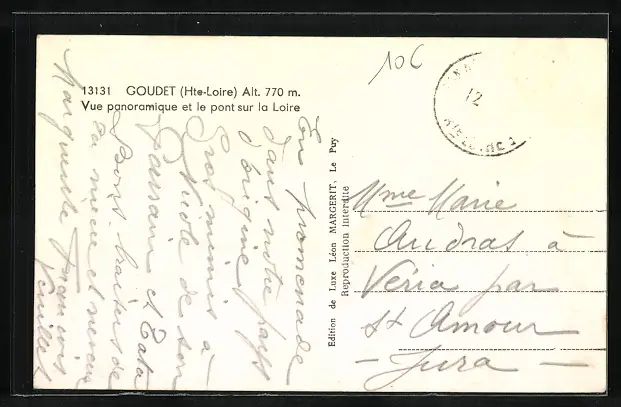 106
13131 GOUDET (Hte-Loire) Alt. 770 m.
Vue panoramique et le pont sur la Loire
En promenade
dans notre pays
d'origine
Gros mimis à
Nicole de son
et Tata
Bons baisers de
ta nièce et neveu
Marguerite François
Edition de Luxe Léon MARGERIT, Le Puy
Reproduction Interdite
12
Mme Marie
Andras à
Véria par
St Amour
- Jura -